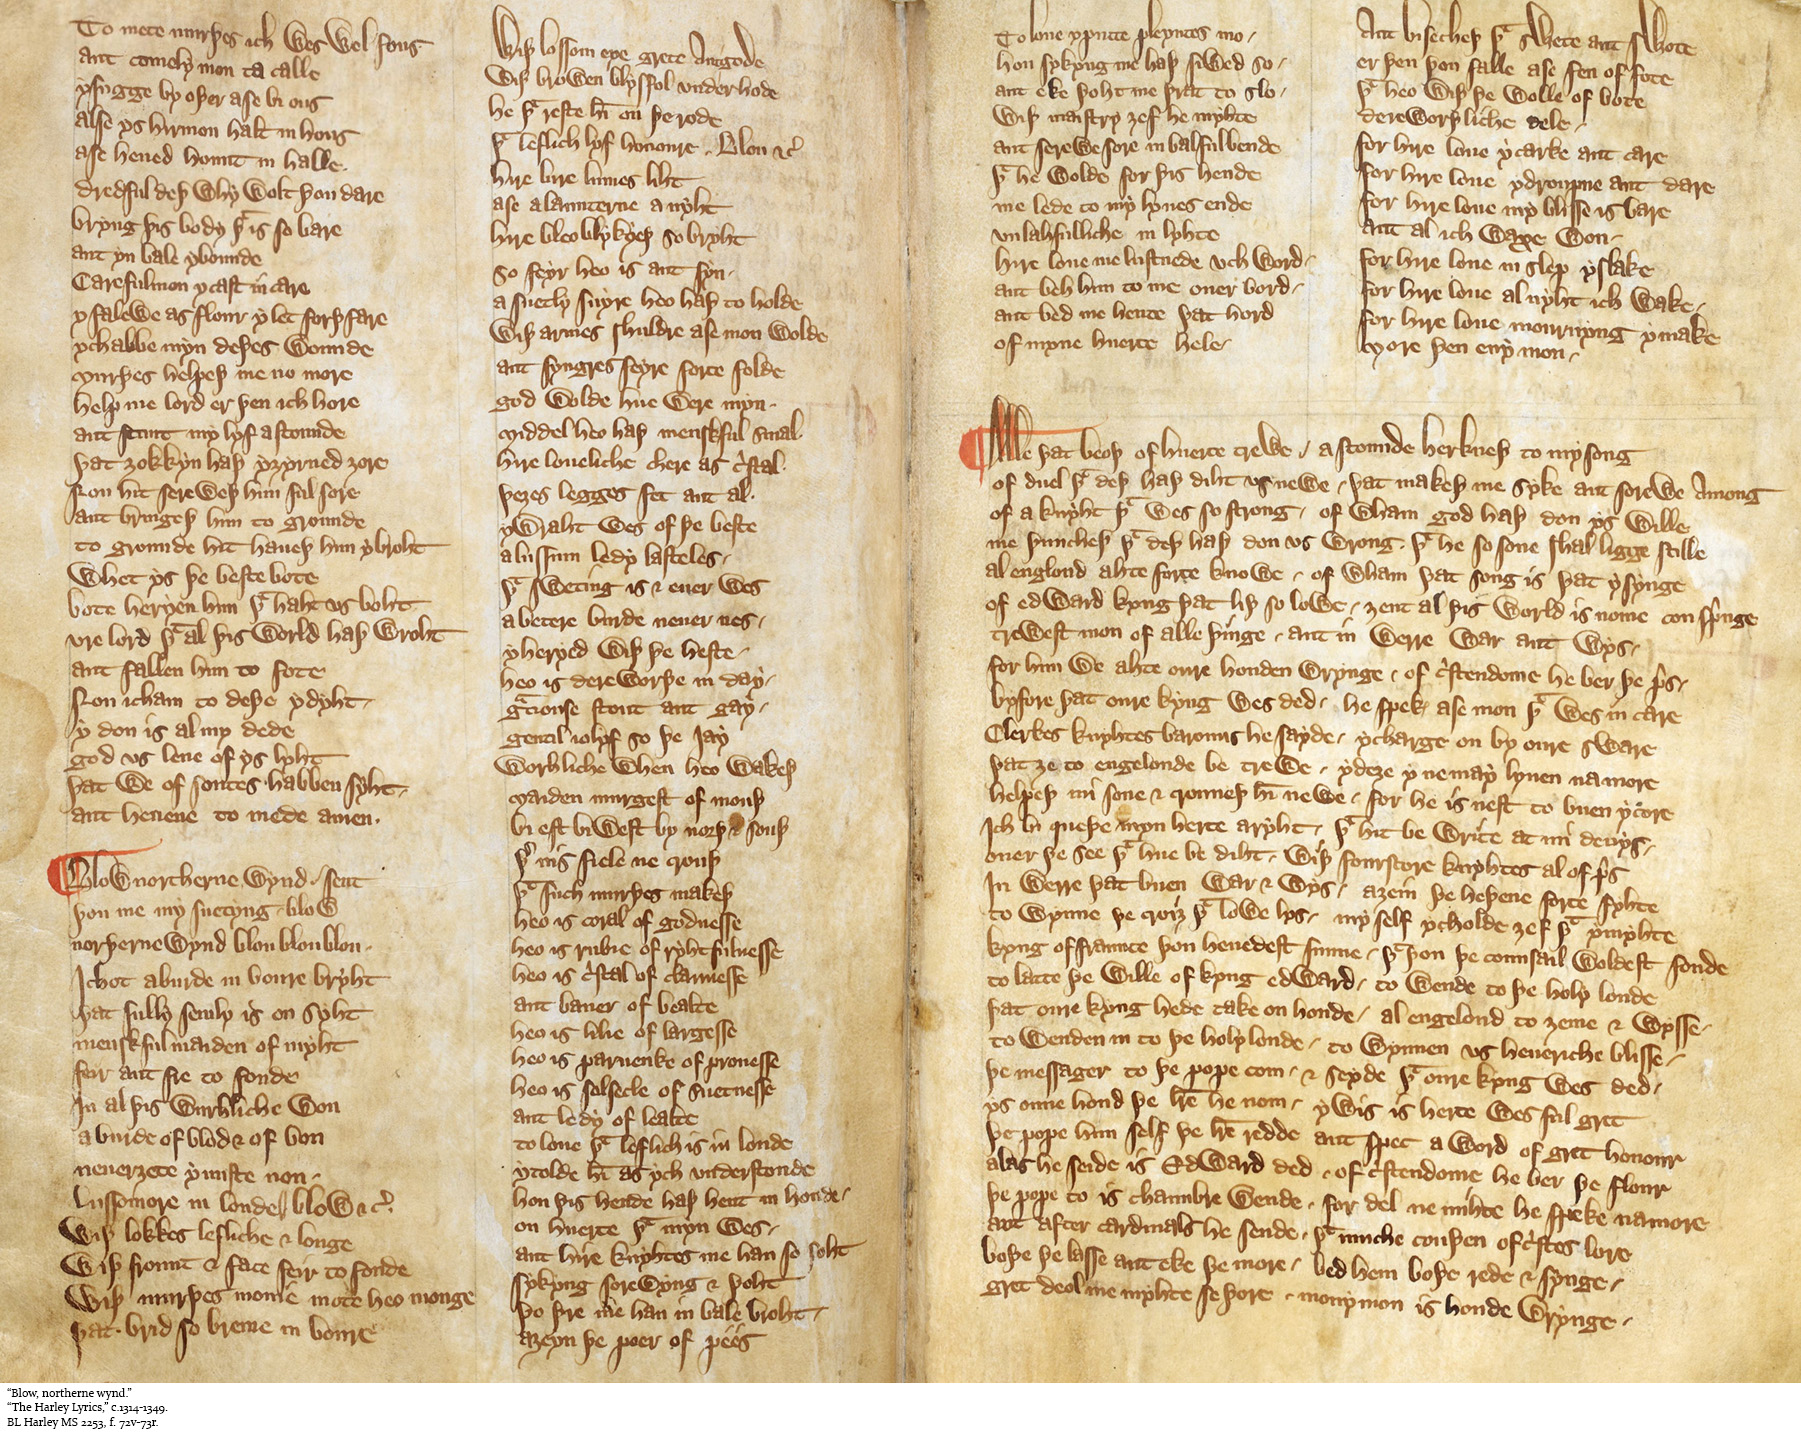 To mete murþes ich wes wel fous
ant comely mon ta calle
y sugge by oþer ase bi ous
alse ys hirmon halt in hous
ase heued hount in halle.
dredful deþ why wolt þou dare
bryng þis body þͣ is so bare
ant yn bale ybounde
Careful mon ycast in care
y falewe as flour ylet forþfare
ychabbe myn deþes wounde
murþes helpeþ me no more
help me lord er þen ich hore
ant stunt my lyf a stounde
þat ȝokkyn haþ yȝyrned ȝore
Nou hit sereweþ him ful sore
ant bringeþ him to grounde
to grounde hit haueþ him ybroht
whet ys þe beste bote
bote heryen him þͣ haht vs boht
vre lord þͣ al þis world haþ wroht
ant fallen him to fote
Nou icham to deþe ydyht
y don is al my dede
god vs lene of ys lyht
þat we of sontes habben syht
ant heuene to mede amen.
Blow northerne wynd sent
þou me my suetyng blow
norþerne wynd blou blou blou.
Ichot a burde in boure bryht
þat fully semly is on syht
menskful maiden of myht
feir ant fre to fonde
In al þis wurhliche won
a burde of blod & of bon
neuerȝete y nuste non
lussomore in londe blow &c.
Wiþ lokkes lefliche & longe
Wiþ frount & face feir to fonde
Wiþ murþes monie mote heo monge
þat brid so breme in boure
Wiþ lossom eye grete Ant gode
Wiþ browen blysfol vnder hode
he þͣ reste hī on þe rode
þͣ leflich lyf honoure. Blou &c
hire lure lumes liht
ase a launterne a nyht
hire bleo blykyeþ so bryht
So feyr heo is ant fyn.
a suetly suyre heo haþ to holde
Wiþ armes shuldre ase mon wolde
ant fyngres feyre forte folde
god wolde hue were myn.
Middel heo haþ menskful smal.
hire loueliche chere as cͥstal.
þeȝes legges fet ant al.
ywraht wes of þe beste
a lussum ledy lasteles.
þͣ sweting is & euer wes
a betere burde neuer nes.
yheryed wiþ þe heste.
heo is dereworþe in day.
gͣciouse stout ant gay.
gentil iolyf so þe Jay
Worhliche when heo wakeþ
Maiden murgest of mouþ
bi est bi west by norþ & souþ
þͬ nis fiele ne crouþ
þͣ such murþes makeþ
heo is coral of godnesse
heo is rubie of ryhtfulnesse
heo is cͥstal of clannesse
ant baner of bealte
heo is lilie of largesse
heo is paruenke of prouesse
heo is solsecle of suetnesse
ant ledy of lealte
to loue þͣ leflich is in londe
ytolde hī as ych vnderstonde
hou þis hende haþ hent in honde.
on huerte þͣ myn wes.
ant hire knyhtes me han so soht
sykyng sorewyng & þoht
þo þre me han in bale broht.
aȝeyn þe poer of pees
To loue y putte pleyntes mo.
hou sykyng me haþ siwed so.
ant eke þoht me þrat to slo.
wiþ maistry ȝef he myhte
ant serewe sore in balful bende
þͣ he wolde for þis hende
me lede to my lyues ende
vnlahfulliche in lyhte
hire loue me lustnede vch word.
ant beh him to me ouer bord.
ant bed me hente þat hord
of myne huerte hele.
Ant bisecheþ þͣ swete ant swote
er þen þou falle ase fen of fote
þͣ heo wiþ þe wolle of bote
dereworþliche dele.
for hire loue ycarke ant care
for hire loue ydroupne ant dare
for hire loue my blisse is bare
Ant al ich waxe won.
for hire loue in slep yslake
for hire loue al nyht ich wake.
for hire loue mournyng ymake
More þen eny mon.
Alle þat beoþ of huerte trewe. a stounde herkneþ to my song
of duel þͣ deþ haþ diht vs newe. þat makeþ me syke ant sorewe Among
of a knyht þͣ wes so strong. of wham god haþ don ys wille
me þuncheþ þͣ deþ haþ don vs wrong. þͣ he so sone shal ligge stille
al englond ahte forte knowe. of wham þat song is þat y synge
of edward kyng þat liþ so lowe. ȝent al þis world is nome con sp̄nge
trewest mon of alle þinge. ant in werre war ant wys.
for him we ahte oure honden wrynge. of cͥstendome he ber þe pͥs.
byfore þat oure kyng wes ded. he spek ase mon þͣ wes in care
Clerkes knyhtes barouns he sayde. ycharge ou by oure sware
þat ȝe to engelonde be trewe. y deȝe y ne may lyuen na more
helpeþ mi sone & crouneþ hī newe. for he is nest to buen ycore
Ich bi queþe myn herte aryht. þͣ hit be write at mi deuys.
ouer þe see þͣ hue be diht. wiþ fourscore knyhtes al of pͥs
In werre þat buen war & wys. aȝein þe heþene forte fyhte
to wynne þe croiȝ þͣ lowe lys. my self ycholde ȝef þͣ y myhte
kyng of fraunce þou heuedest sunne. þͣ þou þe counsail woldest fonde
to latte þe wille of kyng edward. to wende to þe holy londe
þat oure kyng hede take on honde. al engelond to ȝeme & wysse.
to wenden in to þe holy londe. to wynnen vs heueriche blisse.
þe messager to þe pope com. & seyde þͣ oure kyng wes ded.
ys oune hond þe lr̄e he nom. ywis is herte wes ful gret
þe pope him self þe lr̄e redde ant spec a word of gret honour
alas he seide is Edward ded. of cͥstendome he ber þe flour
þe pope to is chaumbre wende. for del ne mihte he speke na more
ant after cardinals he sende. þͣ muche couþen of cͥstes lore
boþe þe lasse ant eke þe more. bed hem boþe rede & synge.
gret deol me myhte se þore. mony mon is honde wrynge.
“Blow, northerne wynd.”
“The Harley Lyrics,” c.1314-1349.
BL Harley MS 2253, f. 72v-73r.